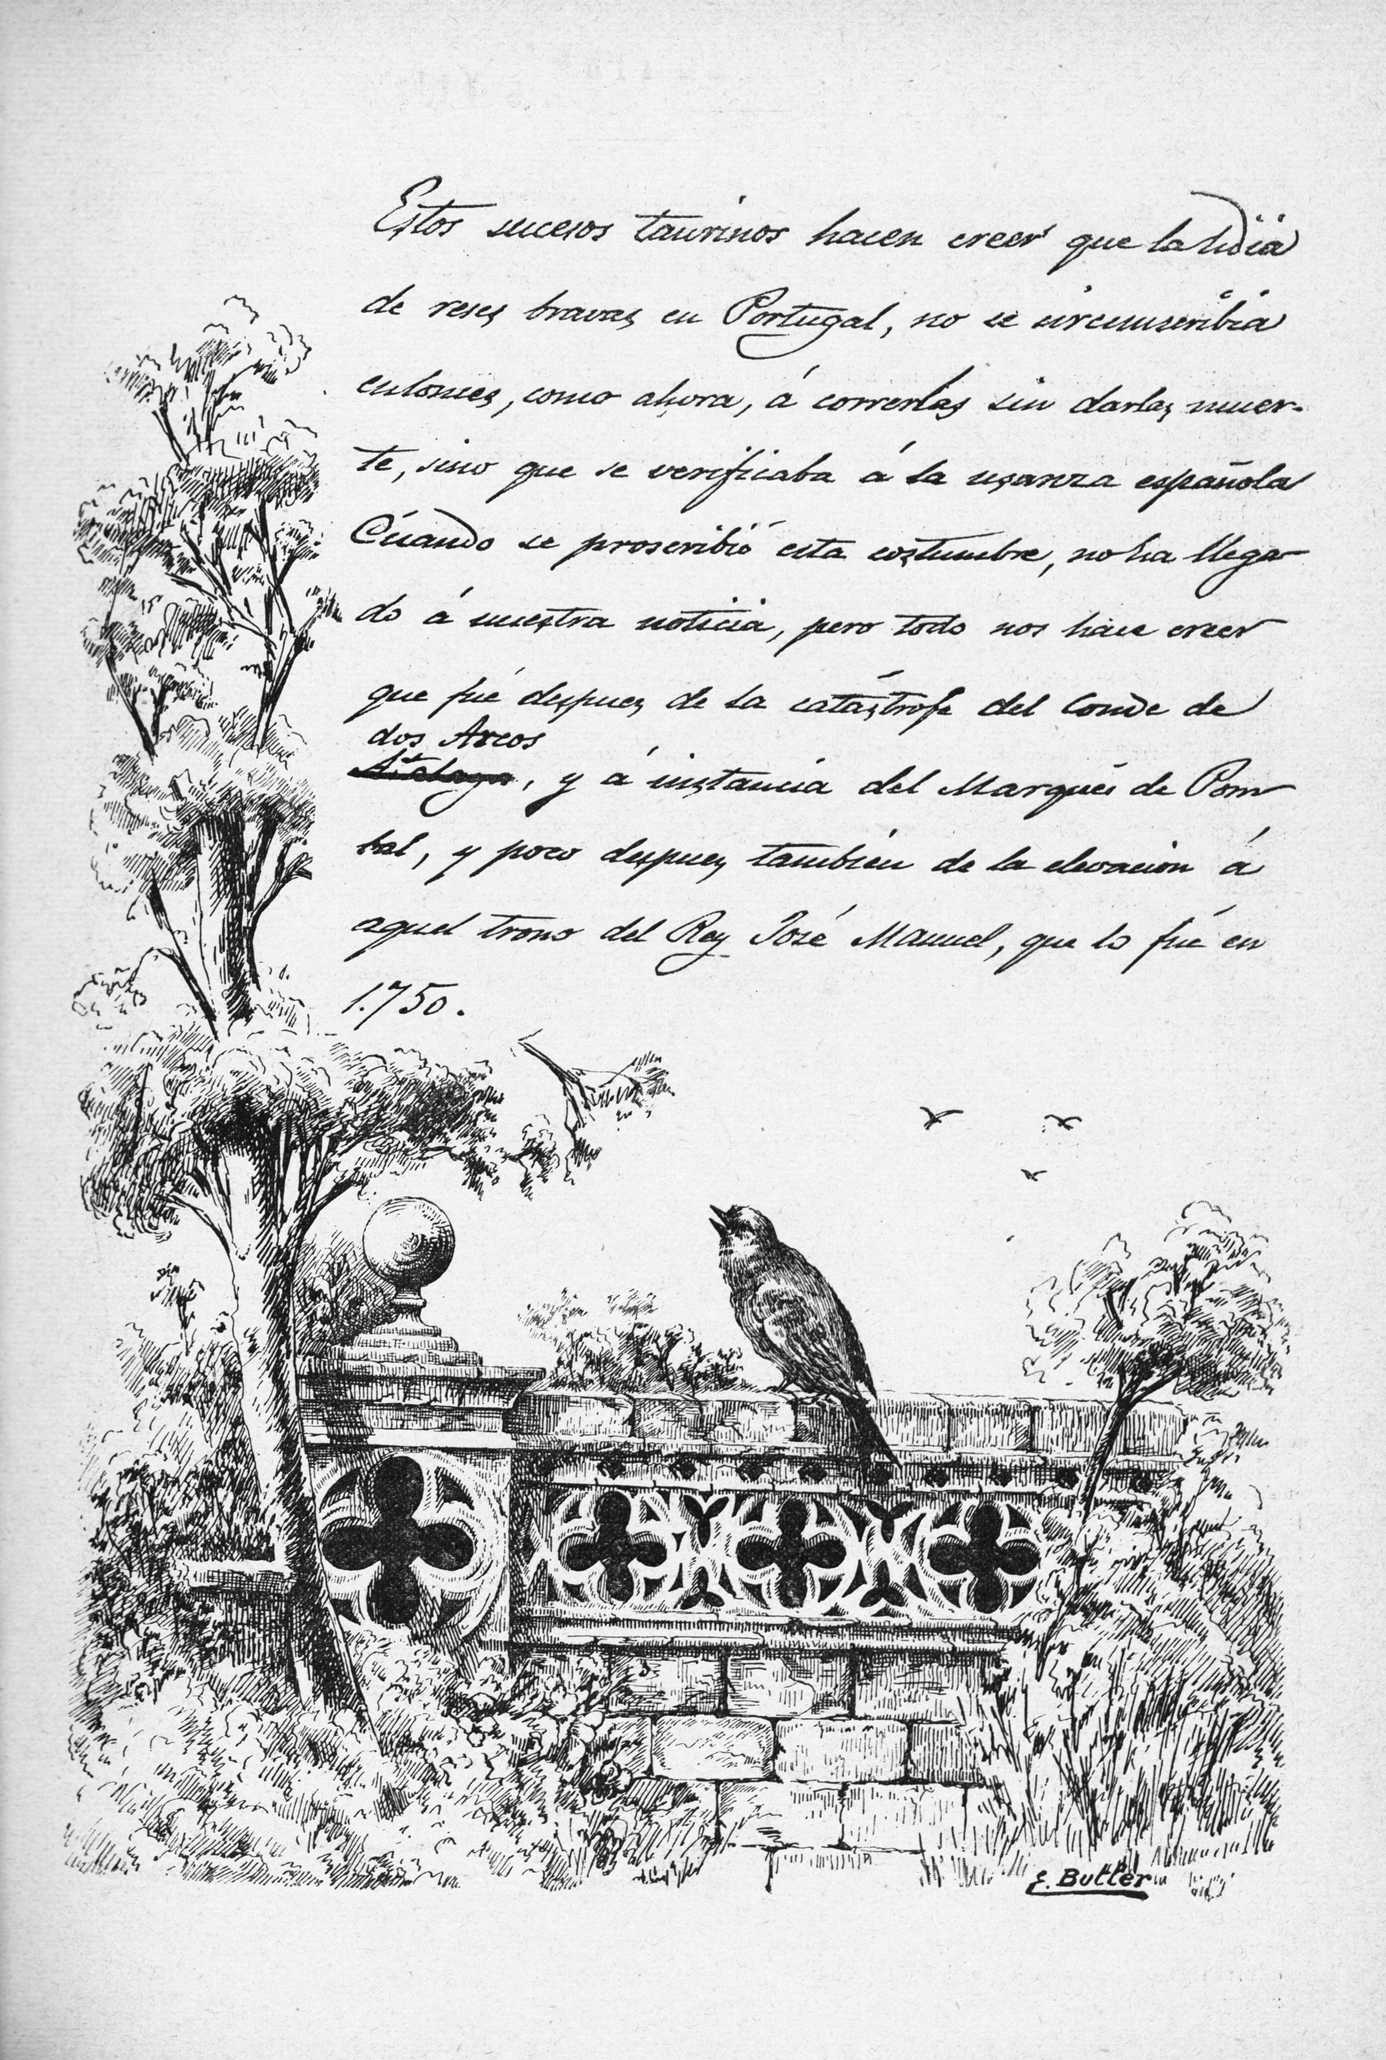 Estos sucesos taurinos hacen creer que la lidia
de reses bravas en Portugal, no se circumscribia
entonces, como ahora, á correrlas sin darlas muer-
te, sino que se verificaba á la usanza española
Cúando se proscribió esta costumbre, no ha llega-
do á nuestra noticia, pero todo nos hace creer
que fué despues de la catástrofe del Conde de
dos Arcos
, y á instancia del Marqués de Pom-
bal, y poco despues también de la elevacion á
aquel trono del Rey José Manuel, que lo fué en
1.750.
E. Butler